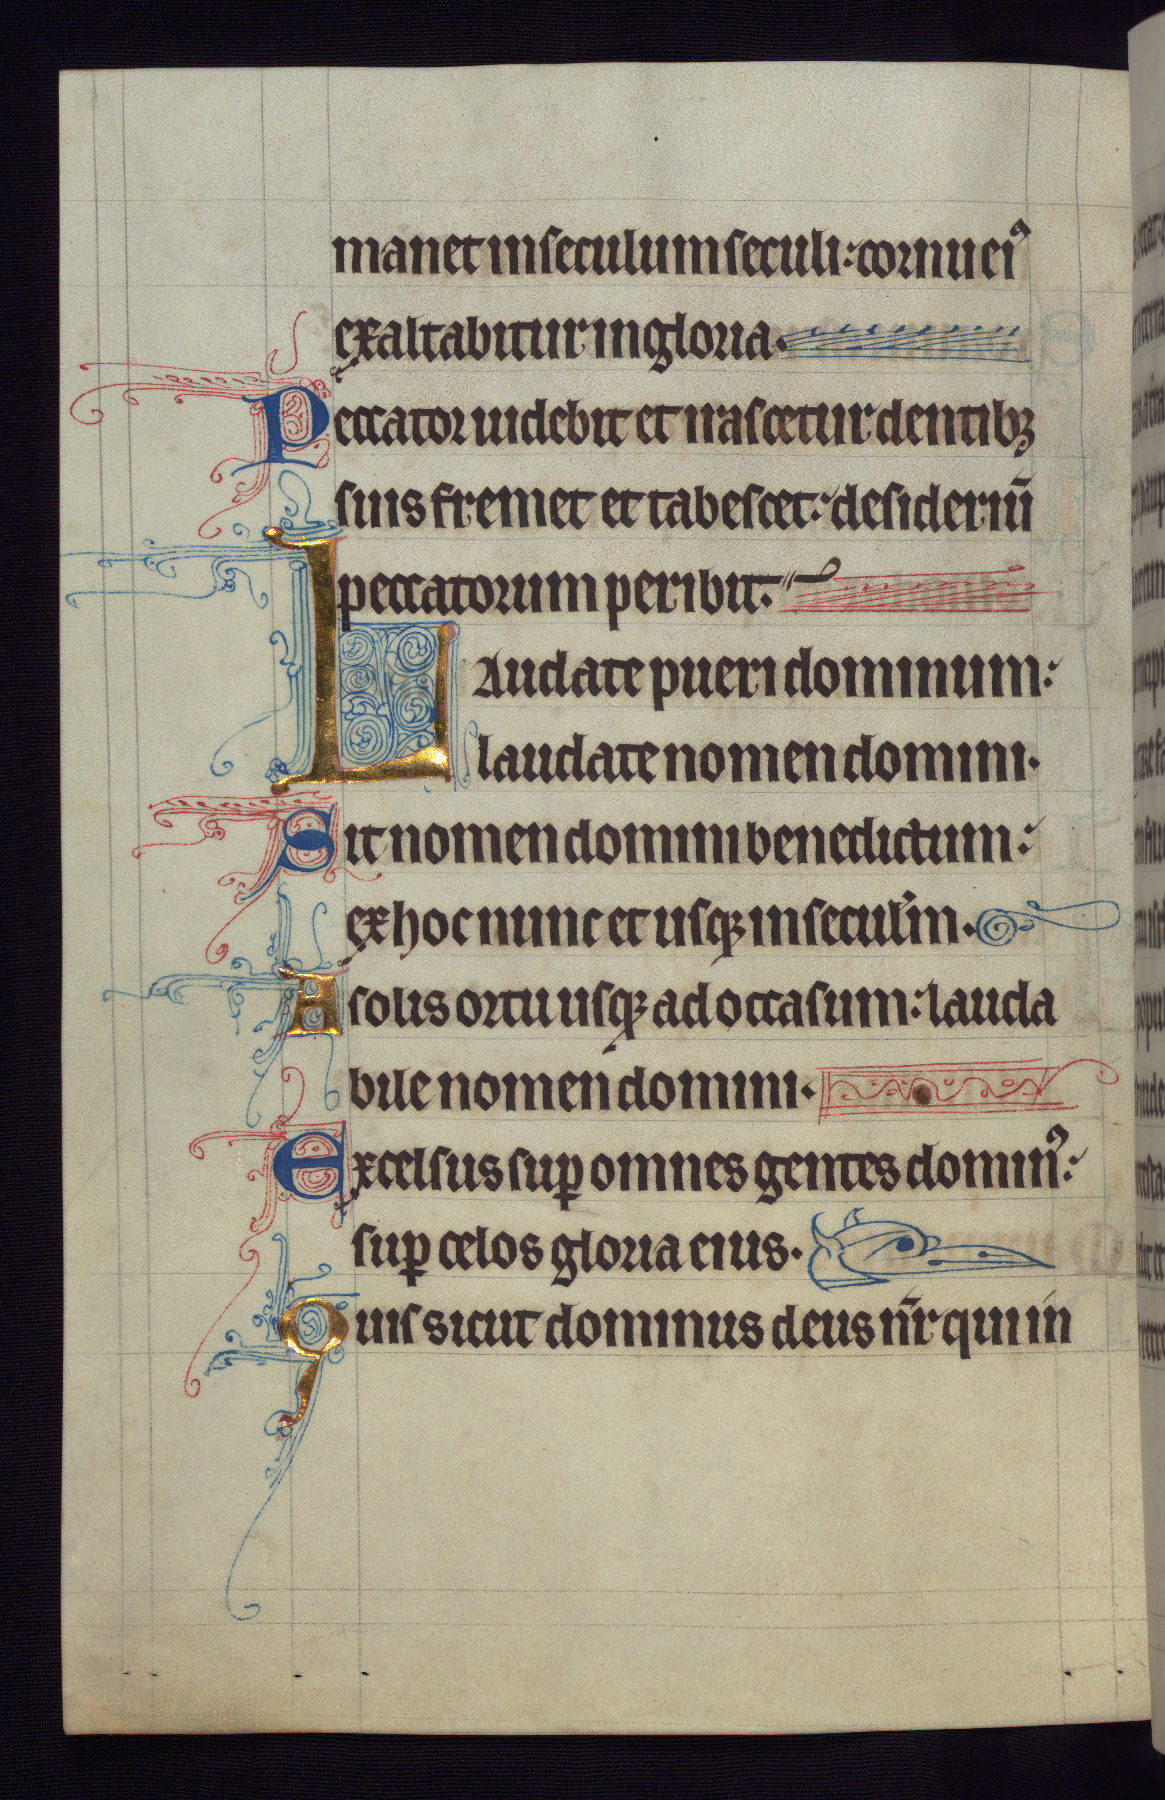 manet in seculum seculi: cornu eiꝰ
exaltabitur in gloria.
Peccator uidebit et irascetur dentibꝫ
suis fremet et tabescet: desideriū
peccatorum peribit.
Laudate pueri dominum:
laudate nomen domini.
Sit nomen domini benedictum:
ex hoc nunc et usqꝫ in secul̄m.
A solis ortu usqꝫ ad occasum: lauda
bile nomen domini.
Excelsus suꝑ omnes gentes dominꝰ:
suꝑ celos gloria eius.
Quis sicut dominus deus nr̄ qui in